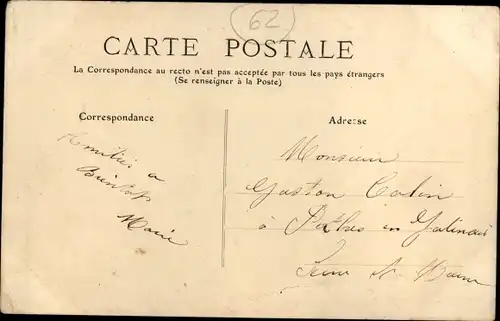 62
CARTE POSTALE
La Correspondance au recto n'est pas acceptée par tous les pays étrangers
(Se renseigner à la Poste)
Correspondance
Adresse
Amitiés a
Bientôt
Marie
Monsieur
Gaston Colin
à en Gatinais
Seine & Marne